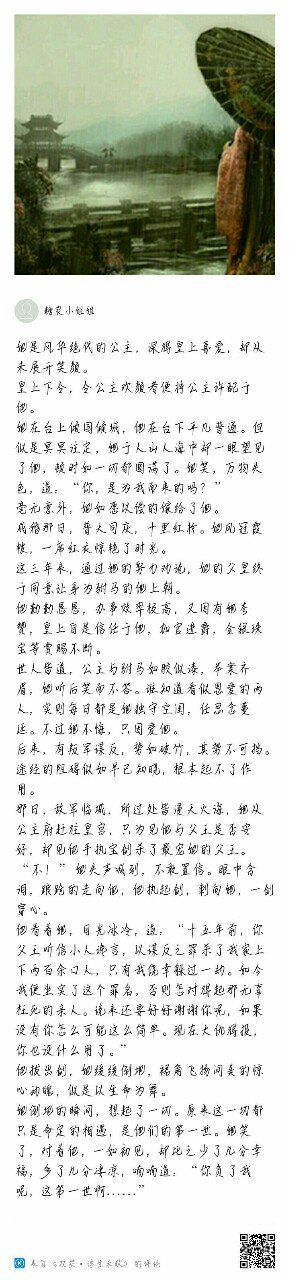 糖炙小姐姐
她是风华绝代的公主，深得皇上喜爱，却从
未展开笑颜。
皇上下令，令公主欢颜者便将公主许配于
他。
她在台上倾国倾城，他在台下平凡普通。但
似是冥冥注定，她于人山人海中却一眼望见
了他，顿时如一切都圆满了。她笑，万物失
色，道：“你，是为我而来的吗？”
毫无意外，她如愿以偿的嫁给了他。
成婚那日，普天同庆，十里红妆。她凤冠霞
帔，一席红衣惊艳了时光。
这三年来，通过她的努力劝说，她的父皇终
于同意让身为驸马的他上朝。
他勤勤恳恳，办事效率极高，又因有她美
赞，皇上自是信任于他，加官进爵，金银珠
宝等赏赐不断。
世人皆道，公主与驸马如胶似漆，举案齐
眉，她听后笑而不答。谁知道看似恩爱的两
人，实则每日都是她独守空闺，任思念蔓
延。不过她不悔，只因爱他。
后来，有叛军谋反，势如破竹，其势不可挡。
途经的阻碍似如早已知晓，根本起不了作
用。
那日，敌军临城，所过处皆漫天火海，她从
公主府赶往皇宫，只为见他与父王是否安
好，却见他手执宝剑杀了最宠她的父王。
“不！”她失声喊到，不敢置信。眼中含
泪，踉跄的走向他，他执起剑，刺向她，一剑
穿心。
他看着她，目光冰冷，道：“十五年前，你
父王听信小人谗言，以谋反之罪杀了我家上
下两百余口人，只有我侥幸躲过一劫。如今
我便坐实了这个罪名，否则怎对得起那无辜
枉死的亲人。说来还要好好谢谢你呢，如果
没有你怎么可能这么简单。现在大仇得报，
你也没什么用了。”
他拔出剑，她缓缓倒地，裙角飞扬间美的惊
心动魄，似是以生命为舞。
她倒地的瞬间，想起了一切。原来这一切都
只是命定的相遇，是他们的第一世。她笑
了，对着他，一如初见，却比之少了几分幸
福，多了几分凄凉，喃喃道：“你负了我
呢，这第一世啊……”
来自《双笙·浮生未歇》的评论